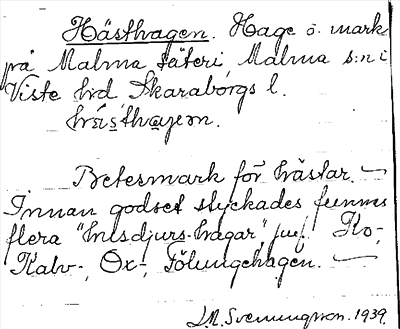 Hästhagen. Hage o. mark
på Malma säteri Malma s:n i
Viste hrd Skaraborgs l.
Betesmark för hästar. —
Innan godset styckades funnos
flera "husdjurs-hagar", jmf. Ko-,
Kalv-, Ox-, Fölungehagen. —
J.N. Svenungsson. 1939.